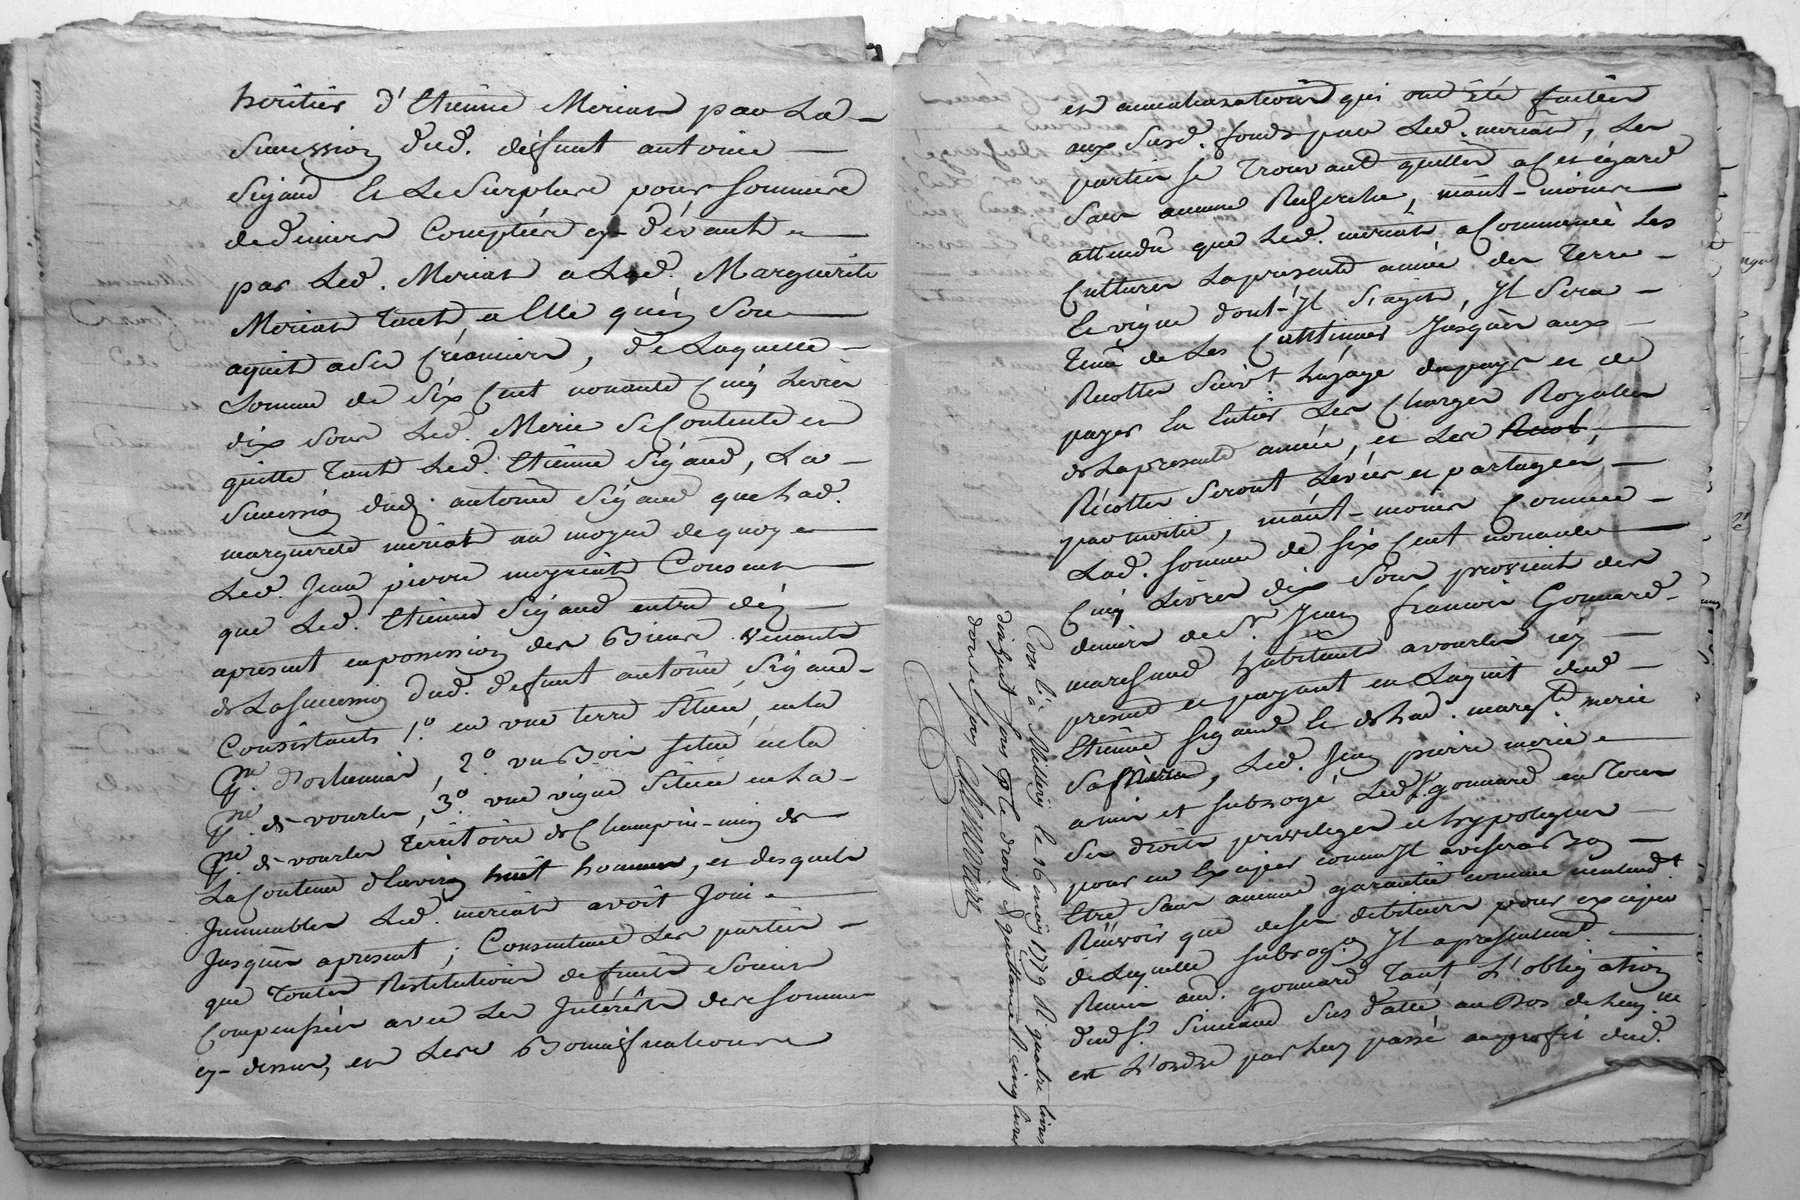 heritier d'Etienne Meriat par La
succession dud. deffunt antoine
Sigaud Et Le Surplus pour Sommes
de deniers Comptées cy-devant
par Led. Meriat a Lad. Marguerite
Meriat tant a Elle qu'en Son
aquit a des Créanciers, de Laquelle
Somme de Six Cent nonante Cinq Livres
dix Sous Led. Merie Se Contente en
quitte tant Led. Etienne Sigaud, La
Succession dud. antoine Sigaud que Lad.
marguerite meriat au moyen de quoy
Led. Jean pierre meyriat Consent
que Led. Etienne Sigaud entre dés
apresent en possession des Biens Venants
de La Succession dud. deffunt antoine Sigaud
Consistants 1.° en une terre Située en la
2.° un Bois situé en la
de vourles, 3.° une vigne Située en La
de vourles Territoire de de
La Contenue d'Environ huit hommes, et desquels
Immeubles Led. meriat avoit Joui
Jusques apresent; Consentent Les parties
que Toutes Restitutions de fruits Soient
Compensées avec Les Intérêts des Sommes
cy-dessus, et Les Bonnifications
et ameliorations qui ont Eté faites
aux Susd. fonds par Led. meriat, Les
parties Se Trouvant quittes a Cet égard
Sans aucune Recherche, mais
attendu que Led. meriat a Commencé Les
Cultures La presente année des Terre
Et vigne dont Il S'agit, Il Sera
Tenu de Les Continuer Jusques aux
Recoltes Suiv.t L'usage du pays et de
payer En Entier Les Charges Royalles
de La presente année, et Les
Récoltes Seront Levées et partagées
par moitié, Comme
Lad. Somme de Six Cent nonante
Cinq Livres dix Sous provient des
deniers de S.r Jean francois Gonnard
marchand habitant a vourles icy
present et payant en L'aquit dud.
Etienne Sigaud Et de Lad. marg.te merie
Sa Mere, Led. Jean pierre merie
a mis et subrogé Led. S.r Gonnard en Tous
Ses droits privileges et hypoteques
pour en Exciper comme Il avisera Bon
Etre Sans aucune garantie comme n'entend.t
Recevoir que de Ses debiteurs pour exciper
de Laquelle Subrog.on Il a présentement
Remis aud. gonnard Tant L'obligation
dud. S.r Simeand Sus dattée, au Bas de
est L'ordre par Luy passé au profit dud.
Con.lé à Millery le 16 may 1779 R. quatre livres
dix huit sous p.r le droit de quittance R. cinq livres